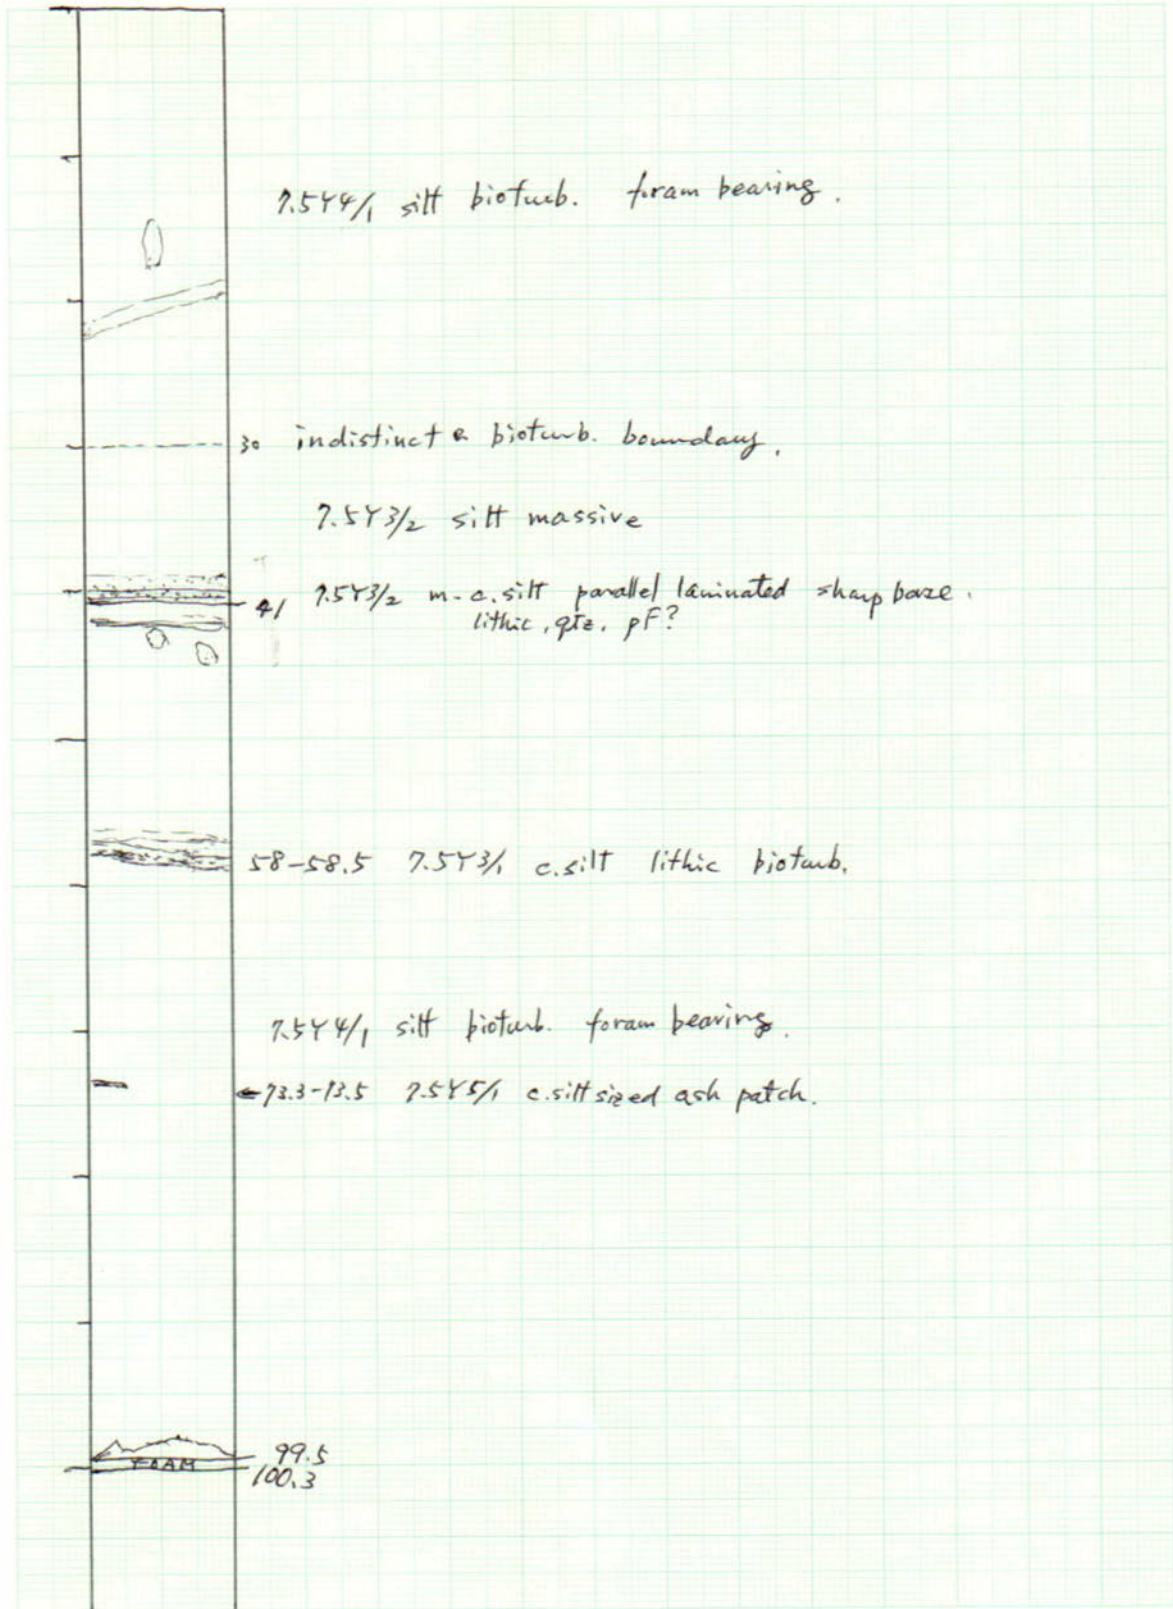 7.5Y4/1 silt bioturb. foram bearing.
30 indistinct & bioturb. boundary.
7.5Y3/2 silt massive
41 7.5Y3/2 m-c.silt parallel laminated sharp base.
lithic, qtz, pF?
58-58.5 7.5Y3/1 c.silt lithic bioturb.
7.5Y4/1 silt bioturb. foram bearing.
←73.3-73.5 7.5Y5/1 c.silt sized ash patch.
99.5
FOAM
100.3